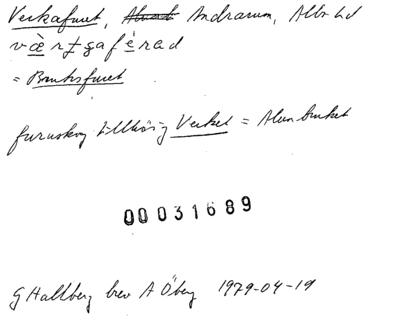 Verkafuret, Andrarum, Albo hd
værkafèrad
= Bruksfuret
furuskog tillhörig Verket = Alunbruket
00031689
G Hallberg brev A Öberg 1979-04-19